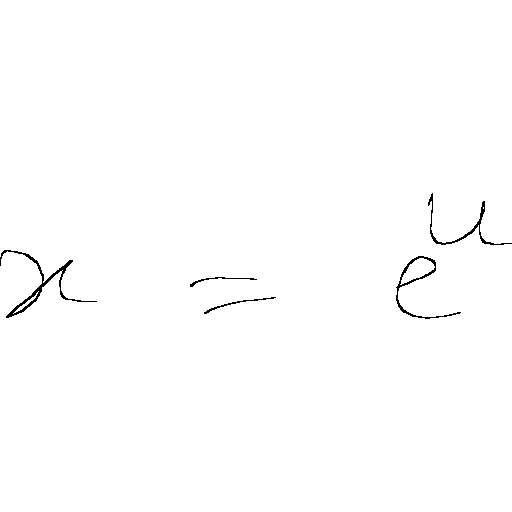 x = e^u